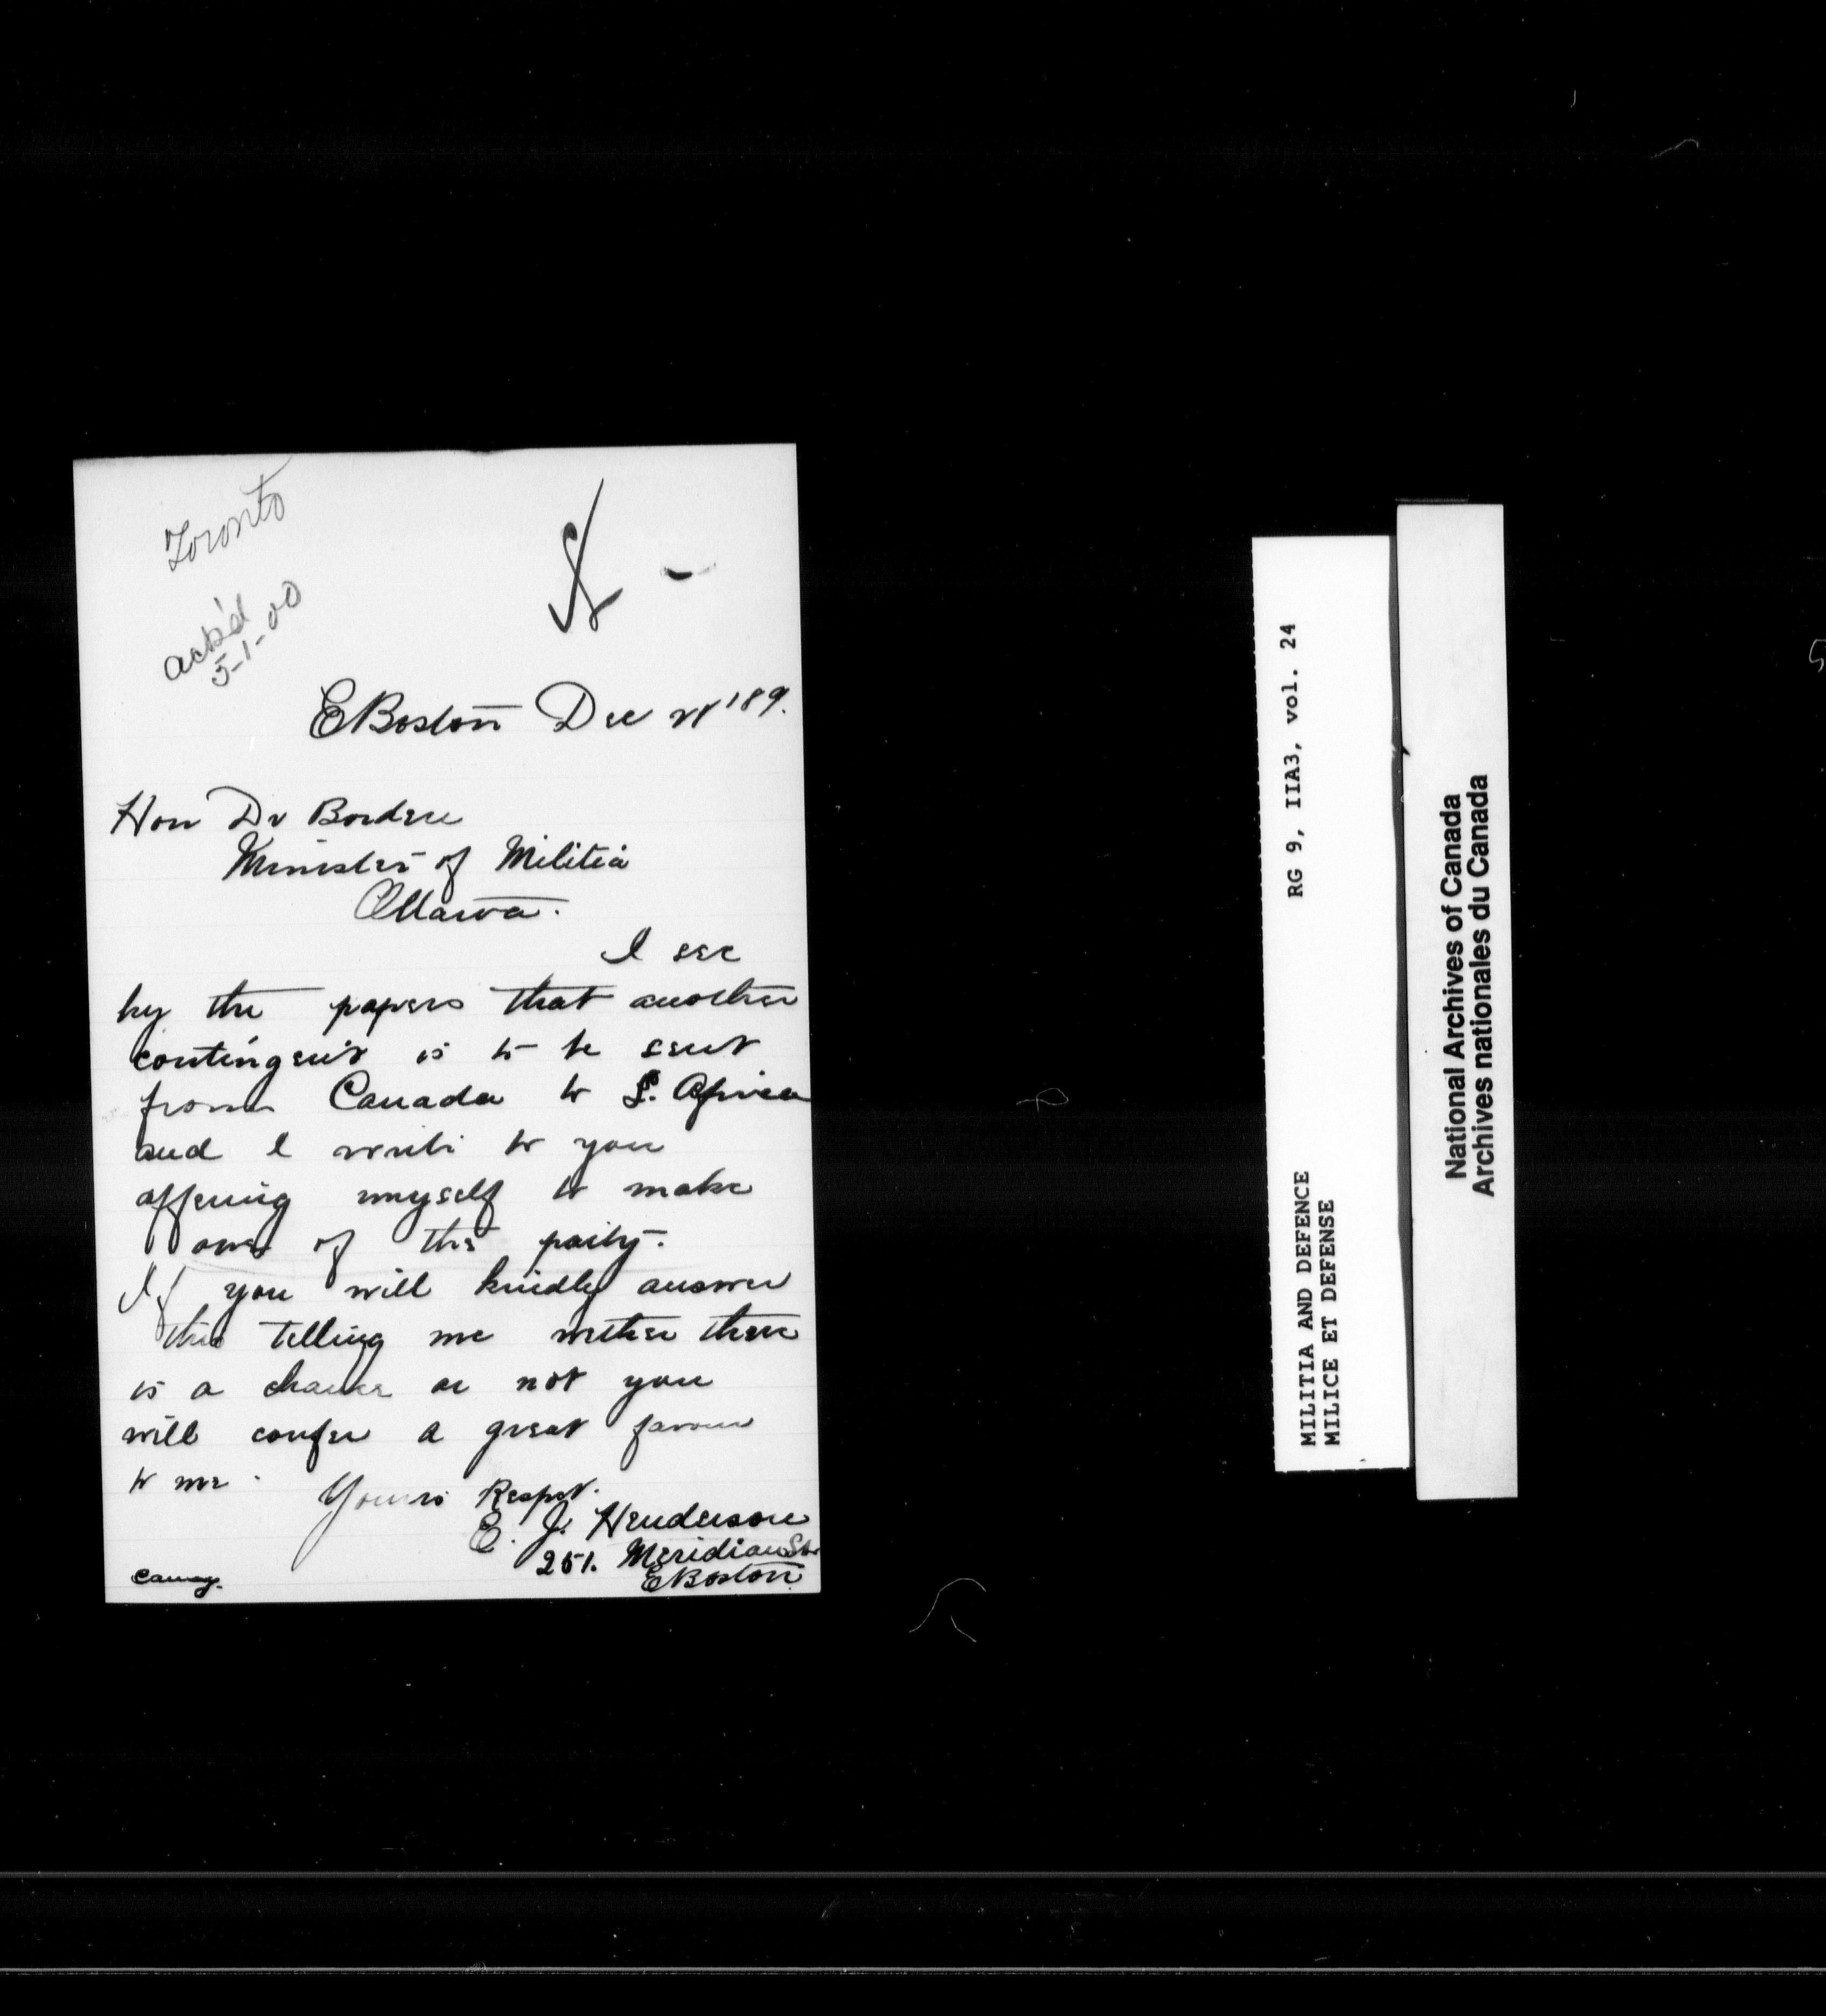 Toronto
ack'd
5-1-00
E Boston Dec '89.
Hon Dr Borden
Minister of Militia
Ottawa.
I see
by the papers that another
contingent is to be sent
from Canada to S. Africa
and I write to you
offering myself to make
one of the party.
If you will kindly answer
this telling me wether there
is a chance or not you
will confer a great favour
to me.
Yours Respct.
E. J. Henderson
251. Meridian St
E Boston
MILITIA AND DEFENCE RG 9, IIA3, vol. 24
MILICE ET DEFENSE
National Archives of Canada
Archives nationales du Canada